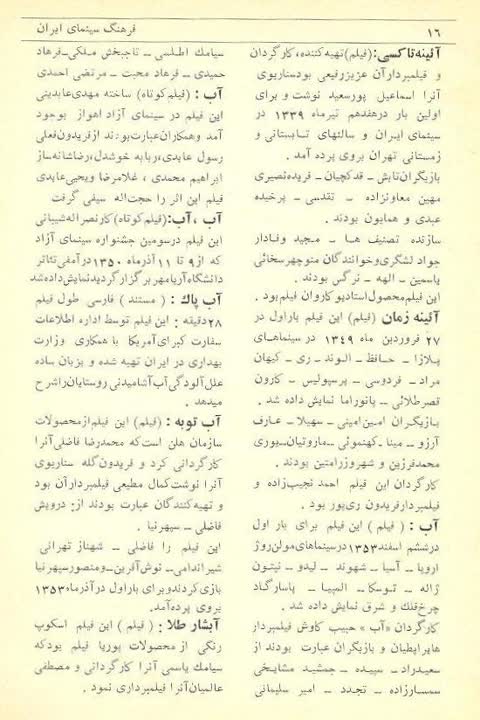 ۱۶
فرهنگ سینمای ایران
آئینه تاکسی: (فیلم) تهیه کننده، کارگردان
و فیلمبردارآن عزیزرفیعی بود سناریوی
آنرا اسماعیل پورسعید نوشت و برای
اولین بار درهفدهم تیرماه ۱۳۳۹ در
سینمای ایران و سالنهای تابستانی و
زمستانی تهران بروی پرده آمد .
بازیگران تابش ــ قدکچیان ــ فریده نصیری
مهین معاونزاده ــ تقدسی ــ پرخیده
عبدی و همایون بودند .
سازنده تصنیف ها ــ مجید وفادار
جواد لشگری وخوانندگان منوچهرسخائی
یاسمین ــ الهه ــ نرگس بودند .
این فیلم محصول استادیو کاروان فیلم بود .
آئینه زمان (فیلم) این فیلم باراول در
۲۷ فروردین ماه ۱۳۴۹ در سینماهای
پلازا ــ حافظ ــ الوند ــ ری ــ کیهان
مراد ــ فردوسی ــ پرسپولیس ــ کارون
قصرطلائی ــ پانوراما نمایش داده شد .
بازیگران امین امینی ــ سهیلا ــ عارف
آرزو ــ مینا ــ کهنموئی ــ ماروتیان ــ یوری
محمدفرزین و شهروزرامتین بودند .
کارگردان این فیلم احمد نجیب زاده و
فیلمبردارفریدون ری پور بود .
آب : ( فیلم ) این فیلم برای بار اول
درششم اسفند ۱۳۵۳ درسینماهای مولن روژ
اروپا ــ آسیا ــ شهوند ــ لیدو ــ نپتون
ژاله ــ توسکا ــ المپیا ــ پاسارگاد
چرخ فلک و شرق نمایش داده شد .
کارگردان «آب» حبیب کاوش فیلمبردار
هایراپطیان و بازیگران عبارت بودند از
سعیدراد ــ سپیده ــ جمشید مشایخی
سمسارزاده ــ تجدد ــ امیر سلیمانی
سیامك اطلسی ــ تاجبخش ملکی ــ فرهاد
حمیدی ــ فرهاد محبت ــ مرتضی احمدی
آب : (فیلم کوتاه) ساخته مهدی عابدینی
این فیلم در سینمای آزاد اهواز بوجود
آمد وهمکاران عبارت بودند ازفریدون فعلی
رسول عابدی، ربابه خوشدل، رضاشانه ساز
ابراهیم محمدی ، غلامرضا ویحیی عابدی
فیلم این اثر را حجت اله سیفی گرفت
آب ، آب: (فیلم کوتاه) کارنصراله شیبانی
این فیلم درسومین جشنواره سینمای آزاد
که از ۹ تا ۱۱ آذرماه ۱۳۵۰ درآمفی تئاتر
دانشگاه آریامهر برگزارگردید نمایش داده شد
آب پاك : ( مستند ) فارسی طول فیلم
۲۸ دقیقه : این فیلم توسط اداره اطلاعات
سفارت کبرای آمریکا با همکاری وزارت
بهداری در ایران تهیه شده و بزبان ساده
علل آلودگی آب آشامیدنی روستایان را شرح
میدهد .
آب توبه : (فیلم) این فیلم از محصولات
سازمان هلن است که محمدرضا فاضلی آنرا
کارگردانی کرد و فریدون گله سناریوی
آنرا نوشت کمال مطیعی فیلمبردار آن بود
و تهیه کنندگان عبارت بودند از: درویش
فاضلی ــ سپهرنیا .
این فیلم را فاضلی ــ شهناز تهرانی
شیراندامی ــ نوش آفرین ــ ومنصورسپهرنیا
بازی کردند وبرای باراول درآذرماه ۱۳۵۳
بروی پرده آمد .
آبشار طلا : ( فیلم ) این فیلم اسکوپ
رنگی از محصولات پوریا فیلم بود که
سیامك یاسمی آنرا کارگردانی و مصطفی
عالمیان آنرا فیلمبرداری نمود .